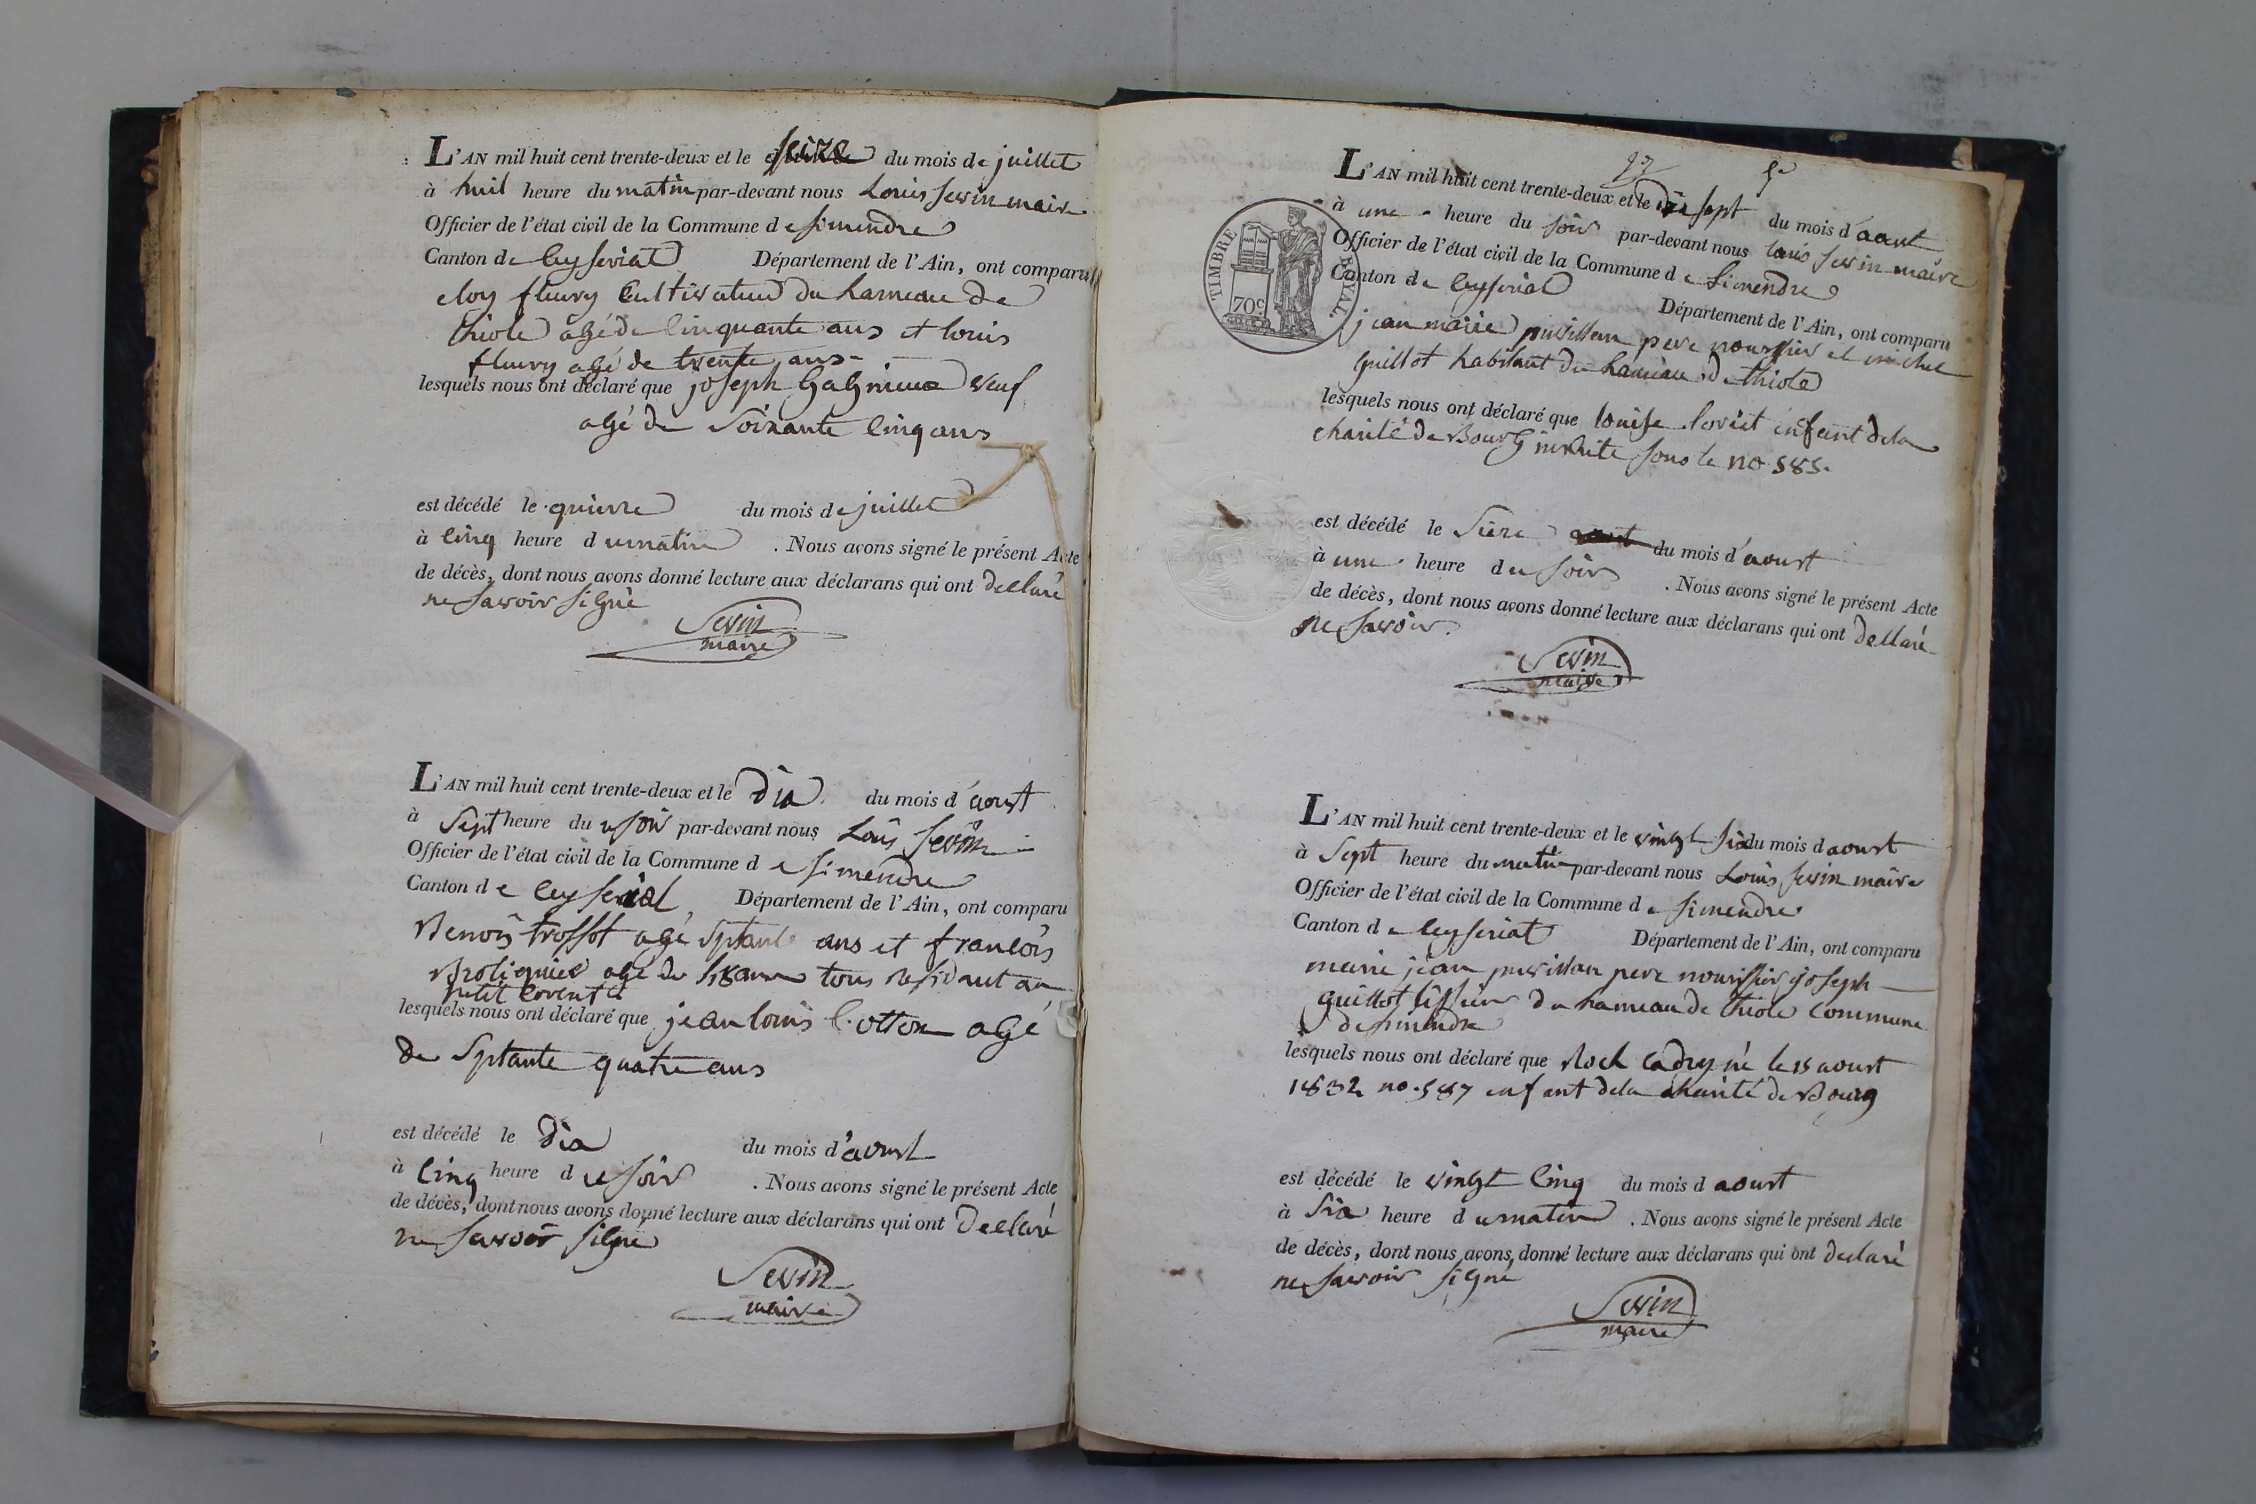 L'AN mil huit cent trente-deux et le seize du mois de juillet
à huit heure du matin par-devant nous Louis sevin maire
Officier de l'état civil de la Commune de simandre
Canton de Ceyseriat Département de l'Ain, ont comparu
eloy fleury Cultivateur du hameau de
thiole agé de Cinquante ans et louis
fleury agé de trente ans
lesquels nous ont déclaré que joseph Gagnieux veuf
agé de Soixante Cinq ans
est décédé le quinze du mois de juillet
à Cinq heure du matin . Nous avons signé le présent Acte
de décès, dont nous avons donné lecture aux déclarans qui ont declaré
ne savoir signé
Sevin
maire
L'AN mil huit cent trente-deux et le dix du mois d'aoust
à Sept heure du soir par-devant nous Louis Sevin
Officier de l'état civil de la Commune de simendre
Canton de Ceyseriat Département de l'Ain, ont comparu
Benoit trossot agé Sptante ans et francois
agé de ans tous Residant au
petit
lesquels nous ont déclaré que jean louis Cotton agé
de Sptante quatre ans
est décédé le dix du mois d'aoust
à Cinq heure du soir . Nous avons signé le présent Acte
de décès, dont nous avons donné lecture aux déclarans qui ont declaré
ne savoir signé
Sevin
maire
27
L'AN mil huit cent trente-deux et le dix sept du mois d'aout
à une heure du soir par-devant nous louis sevin maire
Officier de l'état civil de la Commune de Simendre
Canton de Ceyseriat Département de l'Ain, ont comparu
TIMBRE ROYAL.
70c
jean marie puvillan pere nourssier et michel
guillot habitant du hameau de thiole
lesquels nous ont déclaré que louise enfant dela
charité de Bourg sous le no 585.
est décédé le Seize du mois d'aoust
à une heure du soir . Nous avons signé le présent Acte
de décès, dont nous avons donné lecture aux déclarans qui ont declaré
ne savoir
Sevin
maire
L'AN mil huit cent trente-deux et le vingt six du mois daoust
à Sept heure du matin par-devant nous Louis sevin maire
Officier de l'état civil de la Commune de simendre
Canton de Ceyseriat Département de l'Ain, ont comparu
marie jean puvillan pere nourissier joseph
guillot du hameau de thiole Commune
de simendre
lesquels nous ont déclaré que Roch cadry né le 15 aoust
1832 no. 587 enfant dela charité de Bourg
est décédé le vingt Cinq du mois d aoust
à Six heure du matin . Nous avons signé le présent Acte
de décès, dont nous avons donné lecture aux déclarans qui ont declaré
ne savoir signé
Sevin
maire